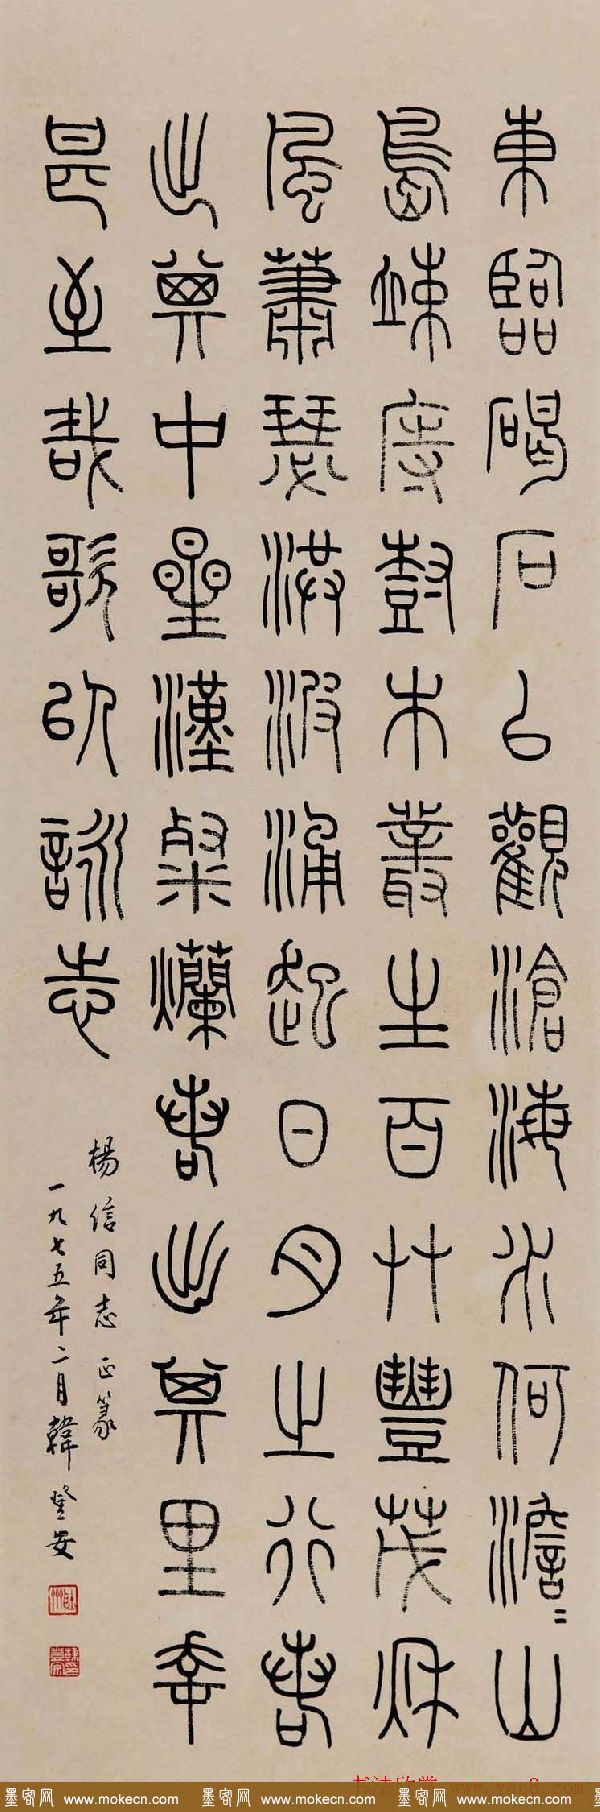 東臨碣石以觀滄海水何澹〻山
島竦庤樹木叢生百艸豐茂秋
風蕭瑟洪波涌起日月之行若
出其中星漢粲爛若出其里幸
甚至哉歌以詠志
楊信同志正篆
一九七五年二月韓登安
书法欣赏 www.yac8.com
墨客网 www.mokecn.com 墨客网 www.mokecn.com 墨客网 www.mokecn.com